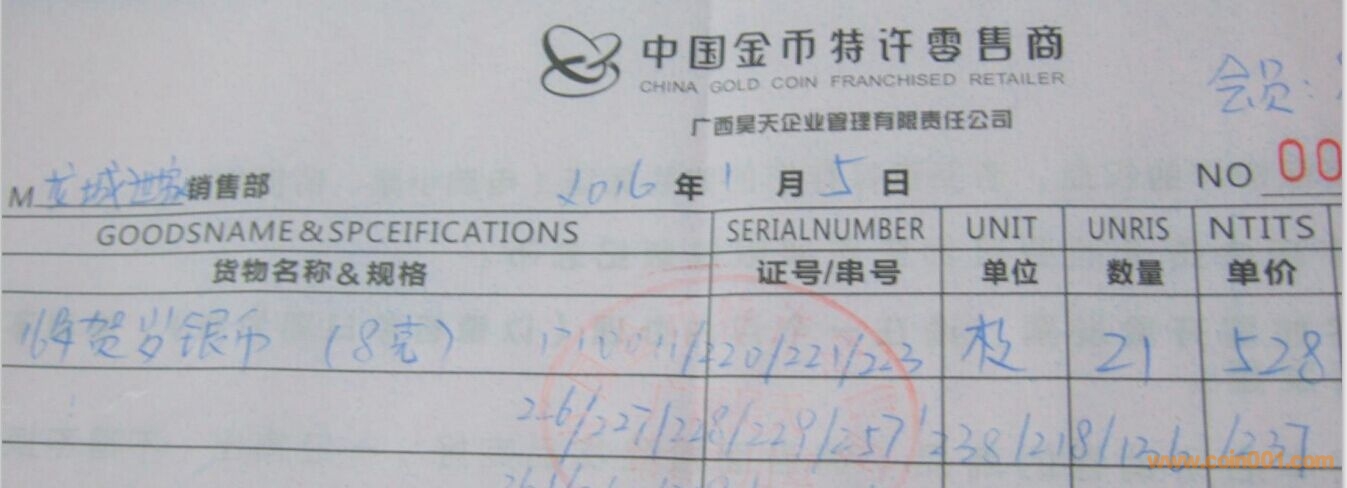 中国金币特许零售商
CHINA GOLD COIN FRANCHISED RETAILER
会员:
广西昊天企业管理有限责任公司
M 龙城世家销售部 2016年1月5日 NO 00
GOODSNAME&SPCEIFICATIONS SERIALNUMBER UNIT UNRIS NTITS
货物名称&规格 证号/串号 单位 数量 单价
16年贺岁银币 (8克) /220/221/223 枚 21 528
226/227/228/229/257/238/218/126/237
www.coin001.com